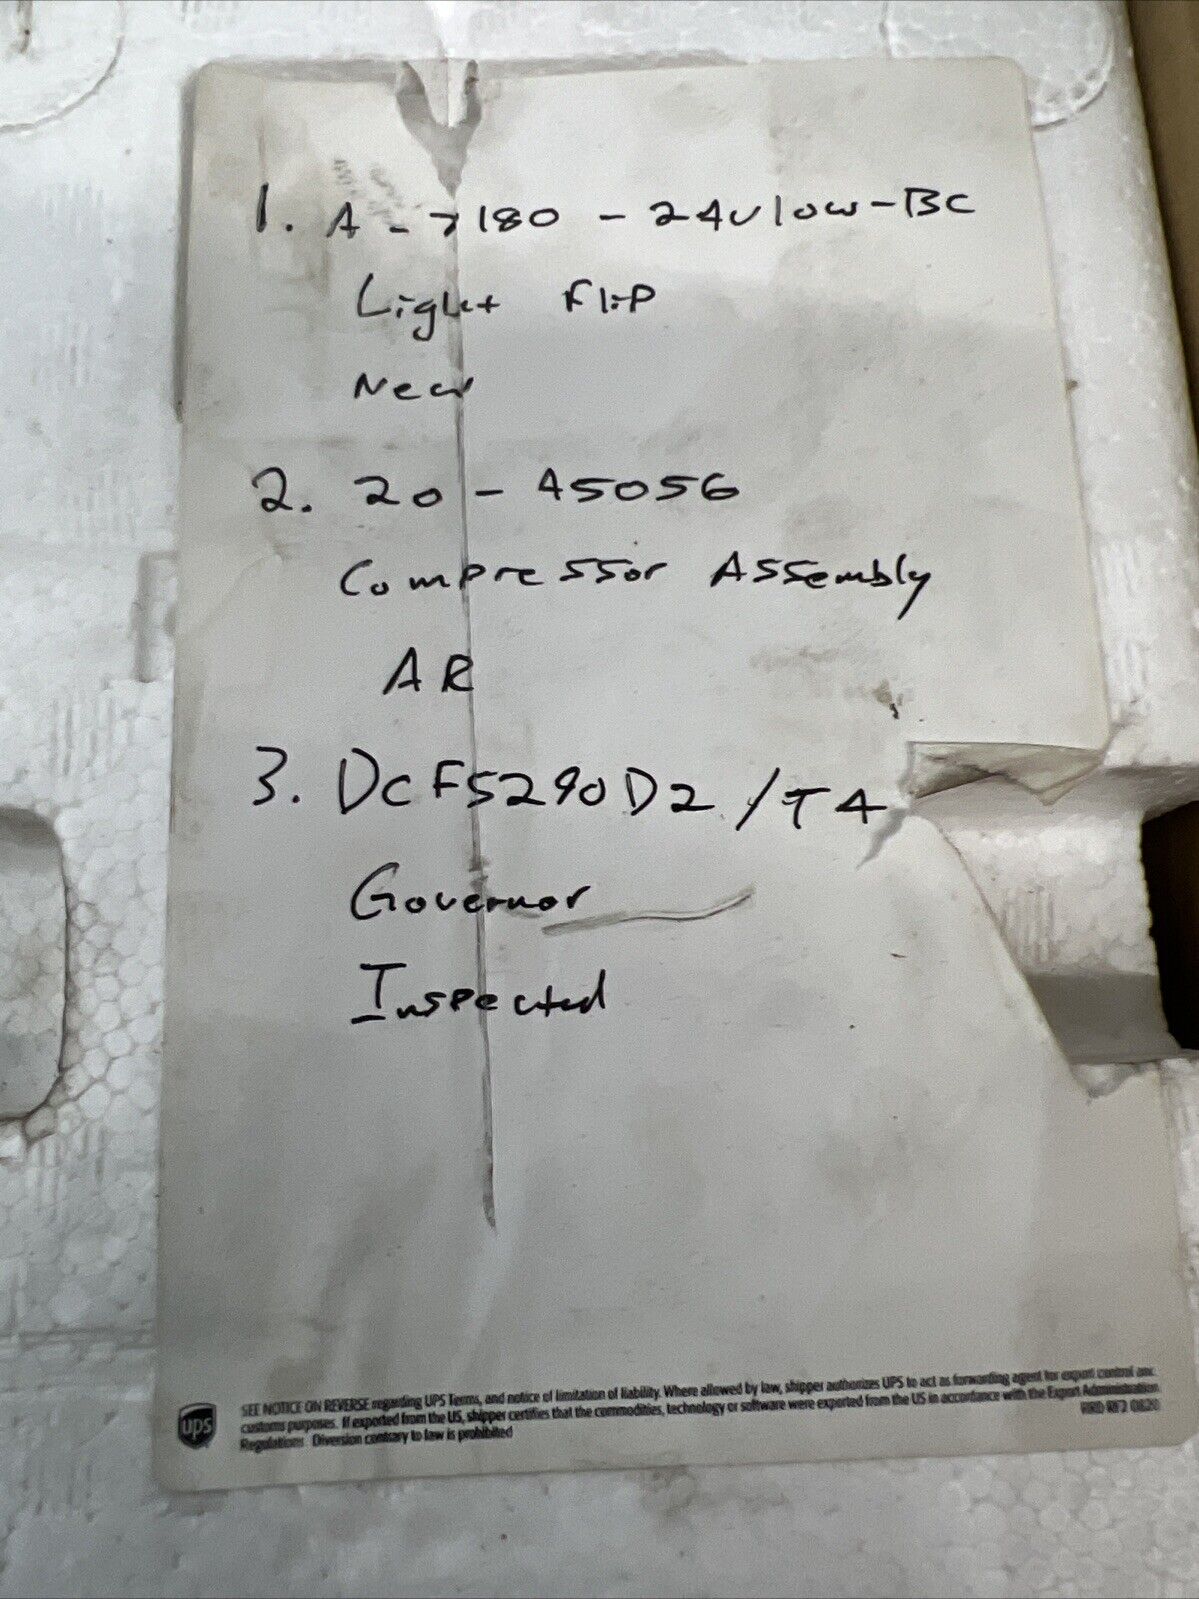 1. A-7180-24V10W-BC
Light Flip
New
2. 20-45056
Compressor Assembly
AR
3. DCFS290D2/T4
Governor
Inspected
ups
SEE NOTICE ON REVERSE regarding UPS Terms, and notice of limitation of liability. Where allowed by law, shipper authorizes UPS to act as forwarding agent for export control and
customs purposes. If exported from the US, shipper certifies that the commodities, technology or software were exported from the US in accordance with the Export Administration
Regulations. Diversion contrary to law is prohibited
RRD RF2 0820